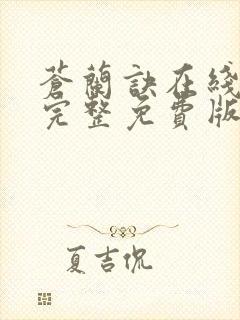 蒼蘭訣在綫
完整免費版
夏吉侃